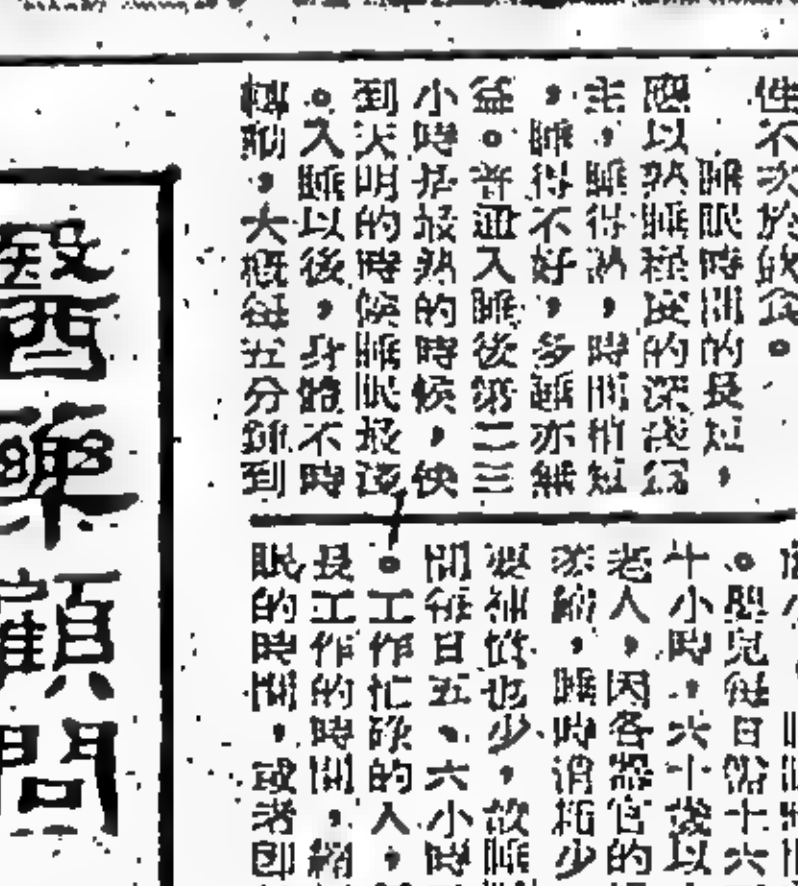 性不次於飲食。
睡眠時間的長短，
應以熟睡程度的深淺爲
主，睡得熟，時間稍短
，睡得不好，多睡亦無
益。普通入睡後第二三
小時是最熟的時候，快
到天明的時候睡眠最淺
。入睡以後，身體不時
轉動，大概每五分鐘到
。嬰兒每日需十六
十小時，六十後以
老人，因各器官的
縮，睡時消耗少
要補償也少，故睡
間每日五、六小時
。工作忙碌的人，
長工作的時間，縮
眠的時間，或者卽
醫藥顧問